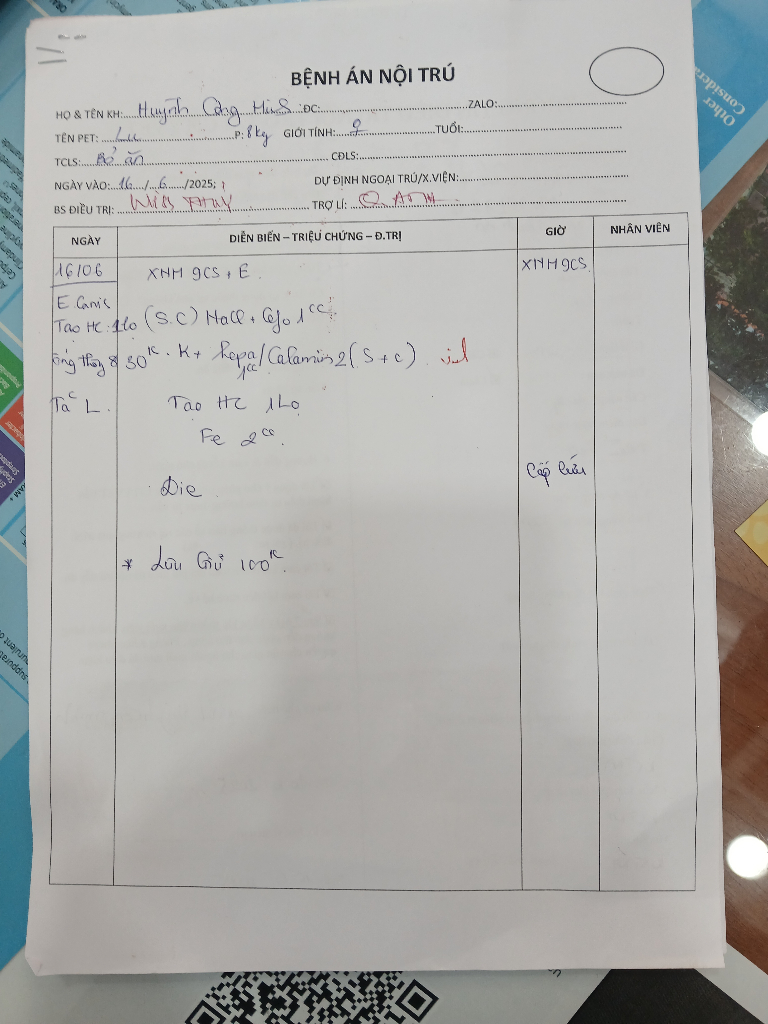 BỆNH ÁN NỘI TRÚ
HỌ & TÊN KH: Huỳnh Công Minh ĐC: ZALO:
TÊN PET: Lu P: 8kg GIỚI TÍNH: ♀ TUỔI:
TCLS: Bỏ ăn CĐLS:
NGÀY VÀO: 16/6/2025; DỰ ĐỊNH NGOẠI TRÚ/X.VIỆN:
BS ĐIỀU TRỊ: TRỢ LÍ:
NGÀY DIỄN BIẾN – TRIỆU CHỨNG – Đ.TRỊ GIỜ NHÂN VIÊN
16/06 XNM 9CS + E XNM 9CS
E Canis
Tạo HC: 1lo (S.C) NaCl + 1cc
30k K+ Hepa/Calamin 2 (S+C)
1cc
L Tạo HC 1Lọ
Fe 2cc
Cấp cứu
Die
* Lưu Giữ 100k
Other